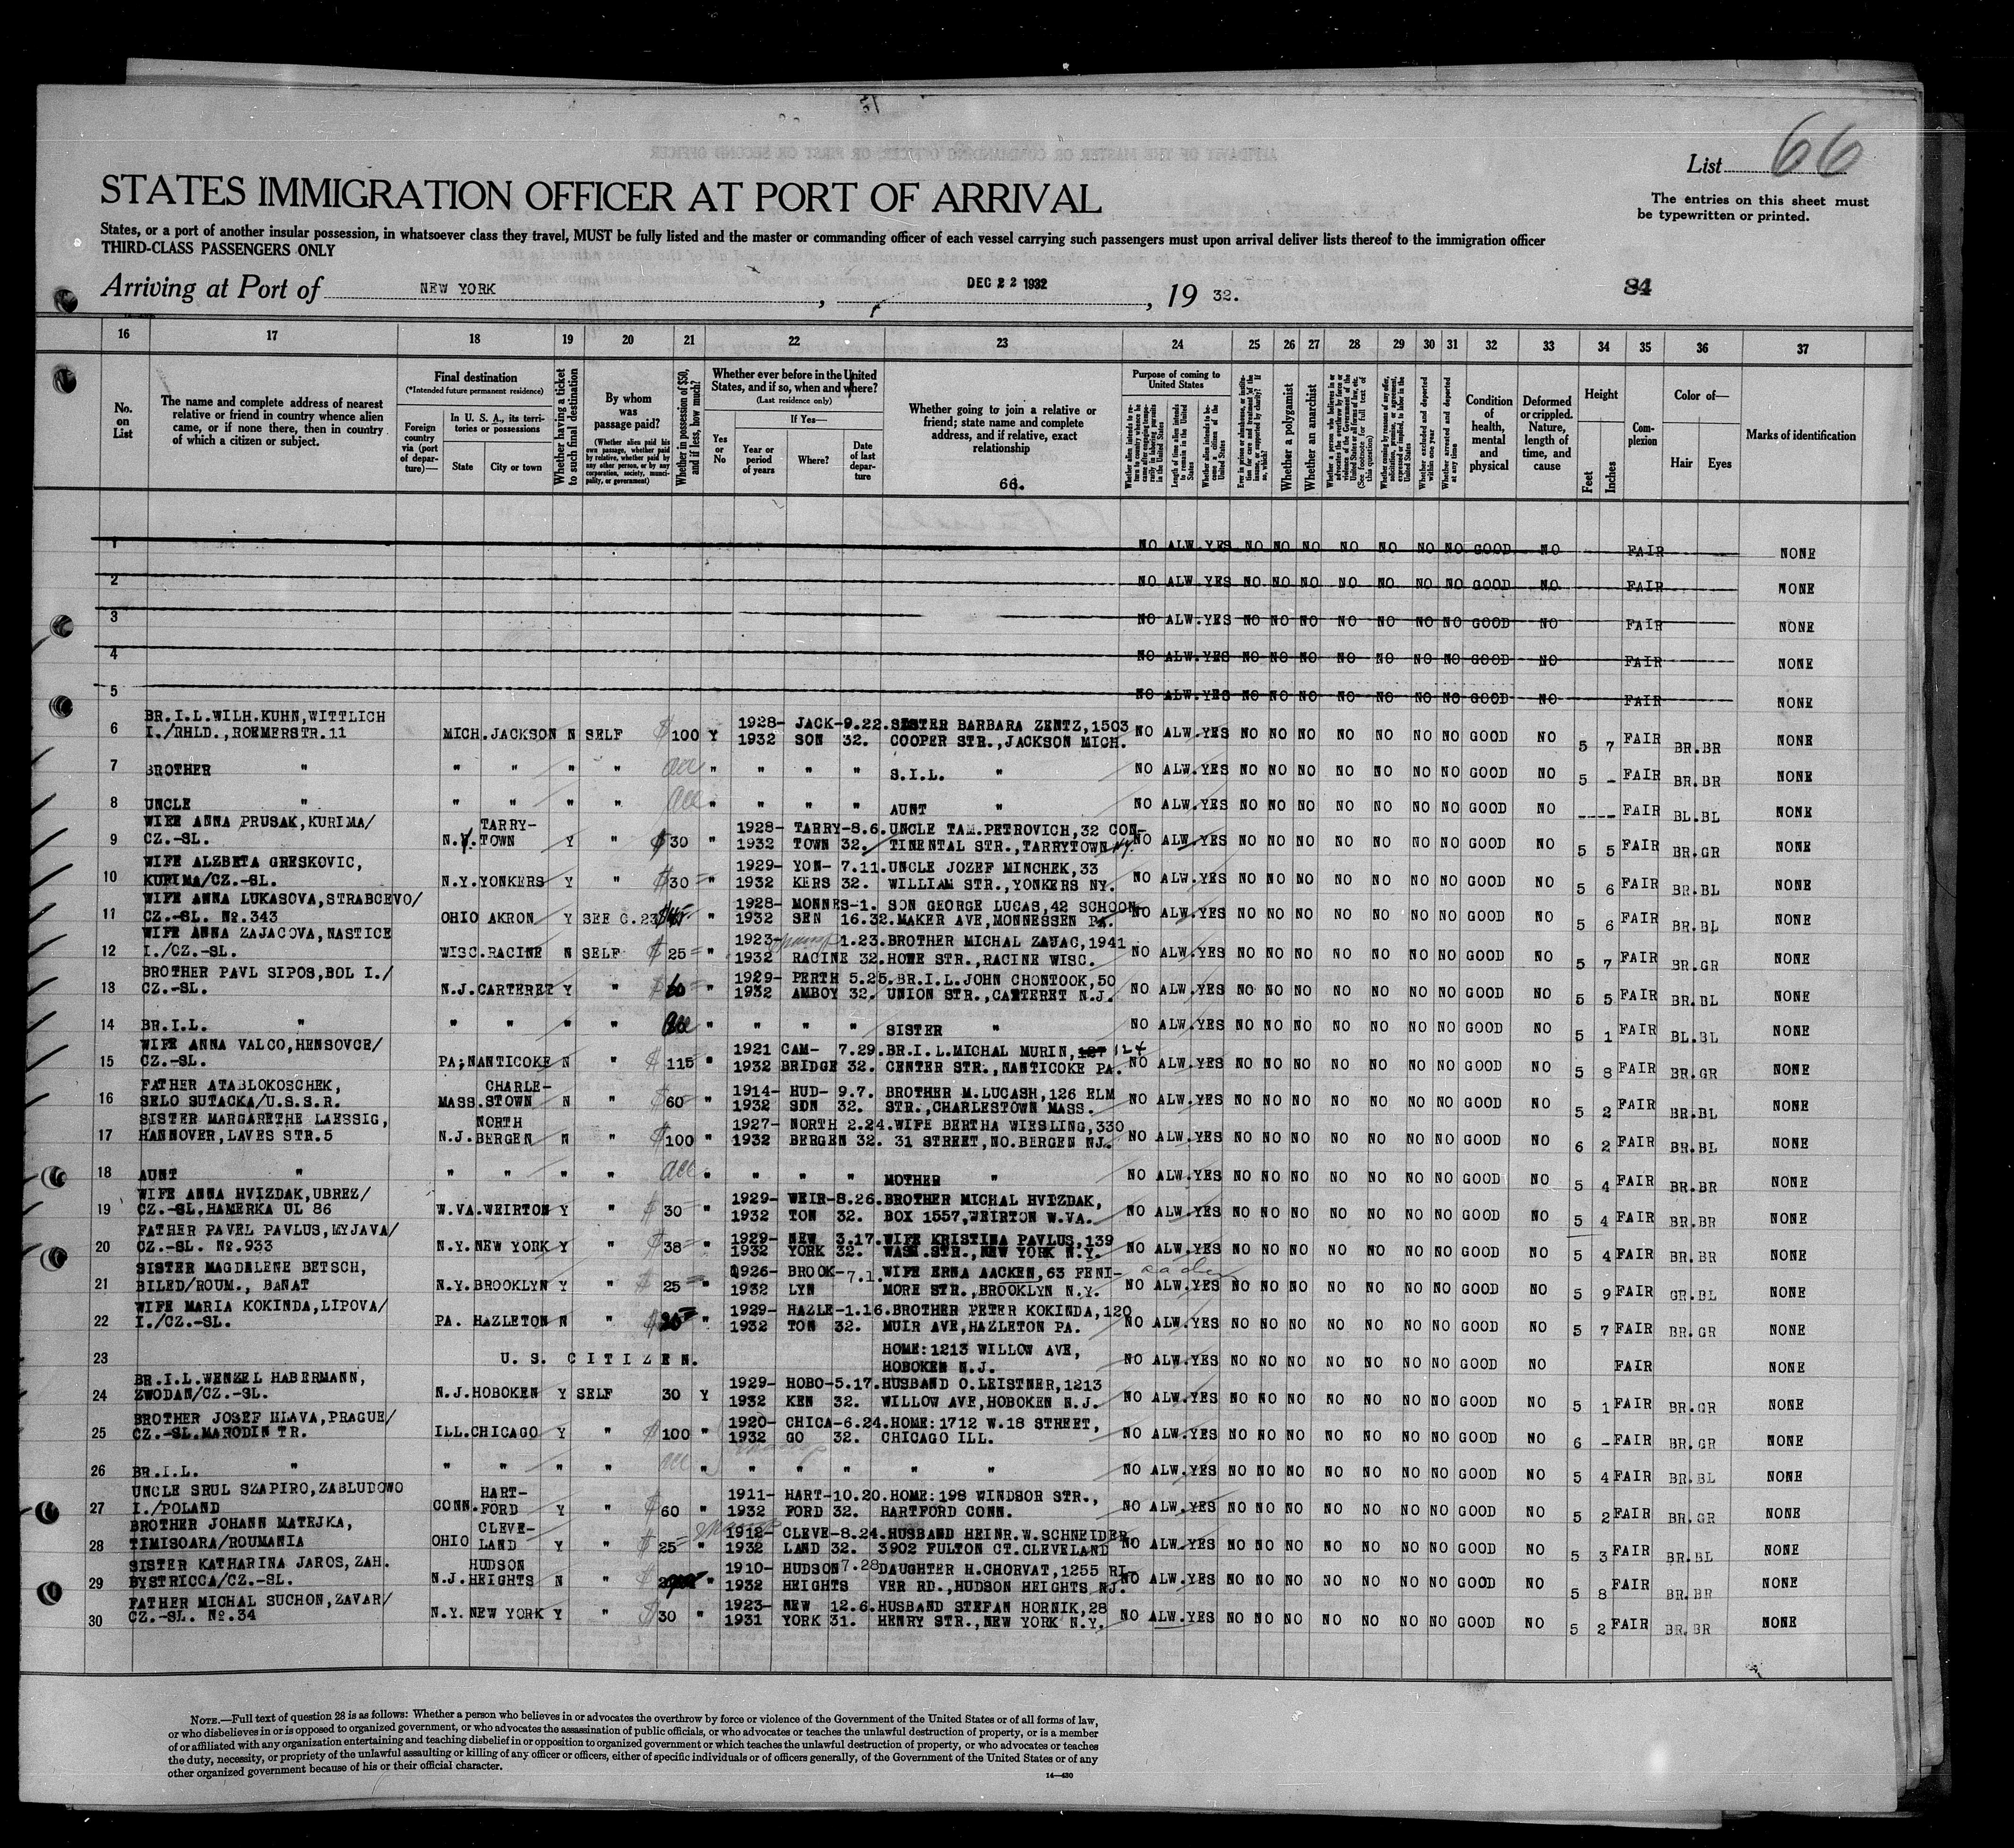 List 66
STATES IMMIGRATION OFFICER AT PORT OF ARRIVAL
The entries on this sheet must
be typewritten or printed.
States, or a port of another insular possession, in whatsoever class they travel, MUST be fully listed and the master or commanding officer of each vessel carrying such passengers must upon arrival deliver lists thereof to the immigration officer
THIRD-CLASS PASSENGERS ONLY
Arriving at Port of NEW YORK, DEC 22 1932, 19 32.
84
16 17 18 19 20 21 22 23 24 25 26 27 28 29 30 31 32 33 34 35 36 37
No. on List
The name and complete address of nearest relative or friend in country whence alien came, or if none there, then in country of which a citizen or subject.
Final destination
(*Intended future permanent residence)
Foreign country via (port of departure)—
In U. S. A., its territories or possessions
State
City or town
Whether having a ticket to such final destination
By whom was passage paid?
(Whether alien paid his own passage, whether paid by relative, whether paid by any other person, or by any corporation, society, municipality, or government)
Whether in possession of $50, and if less, how much?
Whether ever before in the United States, and if so, when and where?
(Last residence only)
Yes or No
If Yes—
Year or period of years
Where?
Date of last departure
Whether going to join a relative or friend; state name and complete address, and if relative, exact relationship
66.
Purpose of coming to United States
Whether alien intends to return to country whence he came after engaging temporarily in laboring pursuits in the United States
Length of time alien intends to remain in the United States
Whether alien intends to become a citizen of the United States
Whether a polygamist
Whether an anarchist
Whether excluded and deported within one year
Whether arrested and deported at any time
Condition of health, mental and physical
Deformed or crippled. Nature, length of time, and cause
Height
Feet
Inches
Complexion
Color of—
Hair
Eyes
Marks of identification
1 NO ALW. YES NO NO NO NO NO NO NO GOOD NO FAIR NONE
2 NO ALW. YES NO NO NO NO NO NO NO GOOD NO FAIR NONE
3 NO ALW. YES NO NO NO NO NO NO NO GOOD NO FAIR NONE
4 NO ALW. YES NO NO NO NO NO NO NO GOOD NO FAIR NONE
5 NO ALW. YES NO NO NO NO NO NO NO GOOD NO FAIR NONE
6 BR.I.L.WILH.KUHN,WITTLICH I./RHLD.,ROEMERSTR.11 MICH. JACKSON N SELF $100 Y 1928-1932 JACK-SON 9.22.32. SISTER BARBARA ZENTZ,1503 COOPER STR.,JACKSON MICH. NO ALW.YES NO NO NO NO NO NO NO GOOD NO 5 7 FAIR BR.BR NONE
7 BROTHER " " " " " acc " " " " S.I.L. " NO ALW.YES NO NO NO NO NO NO NO GOOD NO 5 - FAIR BR.BR NONE
8 UNCLE " " " " " acc " " " " AUNT " NO ALW.YES NO NO NO NO NO NO NO GOOD NO ---- FAIR BL.BL NONE
9 WIFE ANNA PRUSAK,KURIMA/ CZ.-SL. N.Y. TARRY-TOWN Y " $30 " 1928-1932 TARRY-TOWN 8.6.32. UNCLE TAM.PETROVICH,32 CON-TINENTAL STR.,TARRYTOWN NY. NO ALW.YES NO NO NO NO NO NO NO GOOD NO 5 5 FAIR BR.GR NONE
10 WIFE ALZBETA GRESKOVIC, KURIMA/CZ.-SL. N.Y. YONKERS Y " $30 " 1929-1932 YON-KERS 7.11.32. UNCLE JOZEF MINCHEK,33 WILLIAM STR.,YONKERS NY. NO ALW.YES NO NO NO NO NO NO NO GOOD NO 5 6 FAIR BR.BL NONE
11 WIFE ANNA LUKASOVA,STRABCEVO/ CZ.-SL. No.343 OHIO AKRON Y SEE C.23 " 1928-1932 MONNES-SEN 1.16.32. SON GEORGE LUCAS,42 SCHOON-MAKER AVE,MONNESSEN PA. NO ALW.YES NO NO NO NO NO NO NO GOOD NO 5 6 FAIR BR.BL NONE
12 WIFE ANNA ZAJACOVA,NASTICE I./CZ.-SL. WISC. RACINE N SELF $25 " 1923-1932 RACINE 1.23.32. BROTHER MICHAL ZAJAC,1941 HOWE STR.,RACINE WISC. NO ALW.YES NO NO NO NO NO NO NO GOOD NO 5 7 FAIR BR.GR NONE
13 BROTHER PAVL SIPOS,BOL I./ CZ.-SL. N.J. CARTERET Y " $60 " 1929-1932 PERTH AMBOY 5.25.32. BR.I.L.JOHN CHONTOOK,50 UNION STR.,CARTERET N.J. NO ALW.YES NO NO NO NO NO NO NO GOOD NO 5 5 FAIR BR.BL NONE
14 BR.I.L. " " " " " acc " " " " SISTER " NO ALW.YES NO NO NO NO NO NO NO GOOD NO 5 1 FAIR BL.BL NONE
15 WIFE ANNA VALCO,HENSOVCE/ CZ.-SL. PA; NANTICOKE N " $115 " 1921 1932 CAM-BRIDGE 7.29.32. BR.I.L.MICHAL MURIN, 124 CENTER STR.,NANTICOKE PA. NO ALW.YES NO NO NO NO NO NO NO GOOD NO 5 8 FAIR BR.GR NONE
16 FATHER ATABLOKOSCHEK, SELO SUTACKA/U.S.S.R. MASS. CHARLE-STOWN N " $60 " 1914-1932 HUD-SON 9.7.32. BROTHER M.LUCASH,126 ELM STR.,CHARLESTOWN MASS. NO ALW.YES NO NO NO NO NO NO NO GOOD NO 5 2 FAIR BR.BL NONE
17 SISTER MARGARETHE LAESSIG, HANNOVER,LAVES STR.5 N.J. NORTH BERGEN N " $100 " 1927-1932 NORTH BERGEN 2.24.32. WIFE BERTHA WIESLING,330 31 STREET,NO.BERGEN NJ. NO ALW.YES NO NO NO NO NO NO NO GOOD NO 6 2 FAIR BR.BL NONE
18 AUNT " " " " " acc " " " " MOTHER " NO ALW.YES NO NO NO NO NO NO NO GOOD NO 5 4 FAIR BR.BR NONE
19 WIFE ANNA HVIZDAK,UBREZ/ CZ.-SL.HAMERKA UL 86 W.VA. WEIRTON Y " $30 " 1929-1932 WEIR-TON 8.26.32. BROTHER MICHAL HVIZDAK, BOX 1557,WEIRTON W.VA. NO ALW.YES NO NO NO NO NO NO NO GOOD NO 5 4 FAIR BR.BR NONE
20 FATHER PAVEL PAVLUS,MYJAVA/ CZ.-SL. No.933 N.Y. NEW YORK Y " $38 " 1929-1932 NEW YORK 3.17.32. WIFE KRISTINA PAVLUS,139 WASH.STR.,NEW YORK N.Y. NO ALW.YES NO NO NO NO NO NO NO GOOD NO 5 4 FAIR BR.BR NONE
21 SISTER MAGDELENE BETSCH, BILED/ROUM., BANAT N.Y. BROOKLYN Y " $25 " 1926-1932 BROOK-LYN 7.1. WIFE ERNA AACKEN,63 FENI-MORE STR.,BROOKLYN N.Y. NO ALW.YES NO NO NO NO NO NO NO GOOD NO 5 9 FAIR GR.BL NONE
22 WIFE MARIA KOKINDA,LIPOVA/ I./CZ.-SL. PA. HAZLETON N " " 1929-1932 HAZLE-TON 1.16.32. BROTHER PETER KOKINDA,120 MUIR AVE,HAZLETON PA. NO ALW.YES NO NO NO NO NO NO NO GOOD NO 5 7 FAIR BR.GR NONE
23 U. S. CITIZEN. HOME:1213 WILLOW AVE, HOBOKEN N.J. NO ALW.YES NO NO NO NO NO NO NO GOOD NO FAIR NONE
24 BR.I.L.WENZEL HABERMANN, ZWODAN/CZ.-SL. N.J. HOBOKEN Y SELF 30 Y 1929-1932 HOBO-KEN 5.17.32. HUSBAND O.LEISTNER,1213 WILLOW AVE,HOBOKEN N.J. NO ALW.YES NO NO NO NO NO NO NO GOOD NO 5 1 FAIR BR.GR NONE
25 BROTHER JOSEF HLAVA,PRAGUE/ CZ.-SL.MARODIN TR. ILL. CHICAGO Y " $100 " 1920-1932 CHICA-GO 6.24.32. HOME:1712 W.18 STREET, CHICAGO ILL. NO ALW.YES NO NO NO NO NO NO NO GOOD NO 6 - FAIR BR.GR NONE
26 BR.I.L. " " " " " acc " " " " " " NO ALW.YES NO NO NO NO NO NO NO GOOD NO 5 4 FAIR BR.BL NONE
27 UNCLE SRUL SZAPIRO,ZABLUDOWO I./POLAND CONN. HART-FORD Y " $60 " 1911-1932 HART-FORD 10.20.32. HOME:198 WINDSOR STR., HARTFORD CONN. NO ALW.YES NO NO NO NO NO NO NO GOOD NO 5 2 FAIR BR.GR NONE
28 BROTHER JOHANN MATEJKA, TIMISOARA/ROUMANIA OHIO CLEVE-LAND Y " $25 " 1912-1932 CLEVE-LAND 8.24.32. HUSBAND HEINR.W.SCHNEIDER 3902 FULTON CT.CLEVELAND NO ALW.YES NO NO NO NO NO NO NO GOOD NO 5 3 FAIR BR.BL NONE
29 SISTER KATHARINA JAROS, ZAH. BYSTRICCA/CZ.-SL. N.J. HUDSON HEIGHTS N " " 1910-1932 HUDSON HEIGHTS 7.28 DAUGHTER H.CHORVAT,1255 RI-VER RD.,HUDSON HEIGHTS NJ. NO ALW.YES NO NO NO NO NO NO NO GOOD NO 5 8 FAIR BR.BR NONE
30 FATHER MICHAL SUCHON,ZAVAR/ CZ.-SL. No.34 N.Y. NEW YORK Y " $30 " 1923-1931 NEW YORK 12.6.31. HUSBAND STEFAN HORNIK,28 HENRY STR.,NEW YORK N.Y. NO ALW.YES NO NO NO NO NO NO NO GOOD NO 5 2 FAIR BR.BR NONE
NOTE.—Full text of question 28 is as follows: Whether a person who believes in or advocates the overthrow by force or violence of the Government of the United States or of all forms of law,
or who disbelieves in or is opposed to organized government, or who advocates the assassination of public officials, or who advocates or teaches the unlawful destruction of property, or is a member
of or affiliated with any organization entertaining and teaching disbelief in or opposition to organized government or which teaches the unlawful destruction of property, or who advocates or teaches
the duty, necessity, or propriety of the unlawful assaulting or killing of any officer or officers, either of specific individuals or of officers generally, of the Government of the United States or of any
other organized government because of his or their official character.
14—430